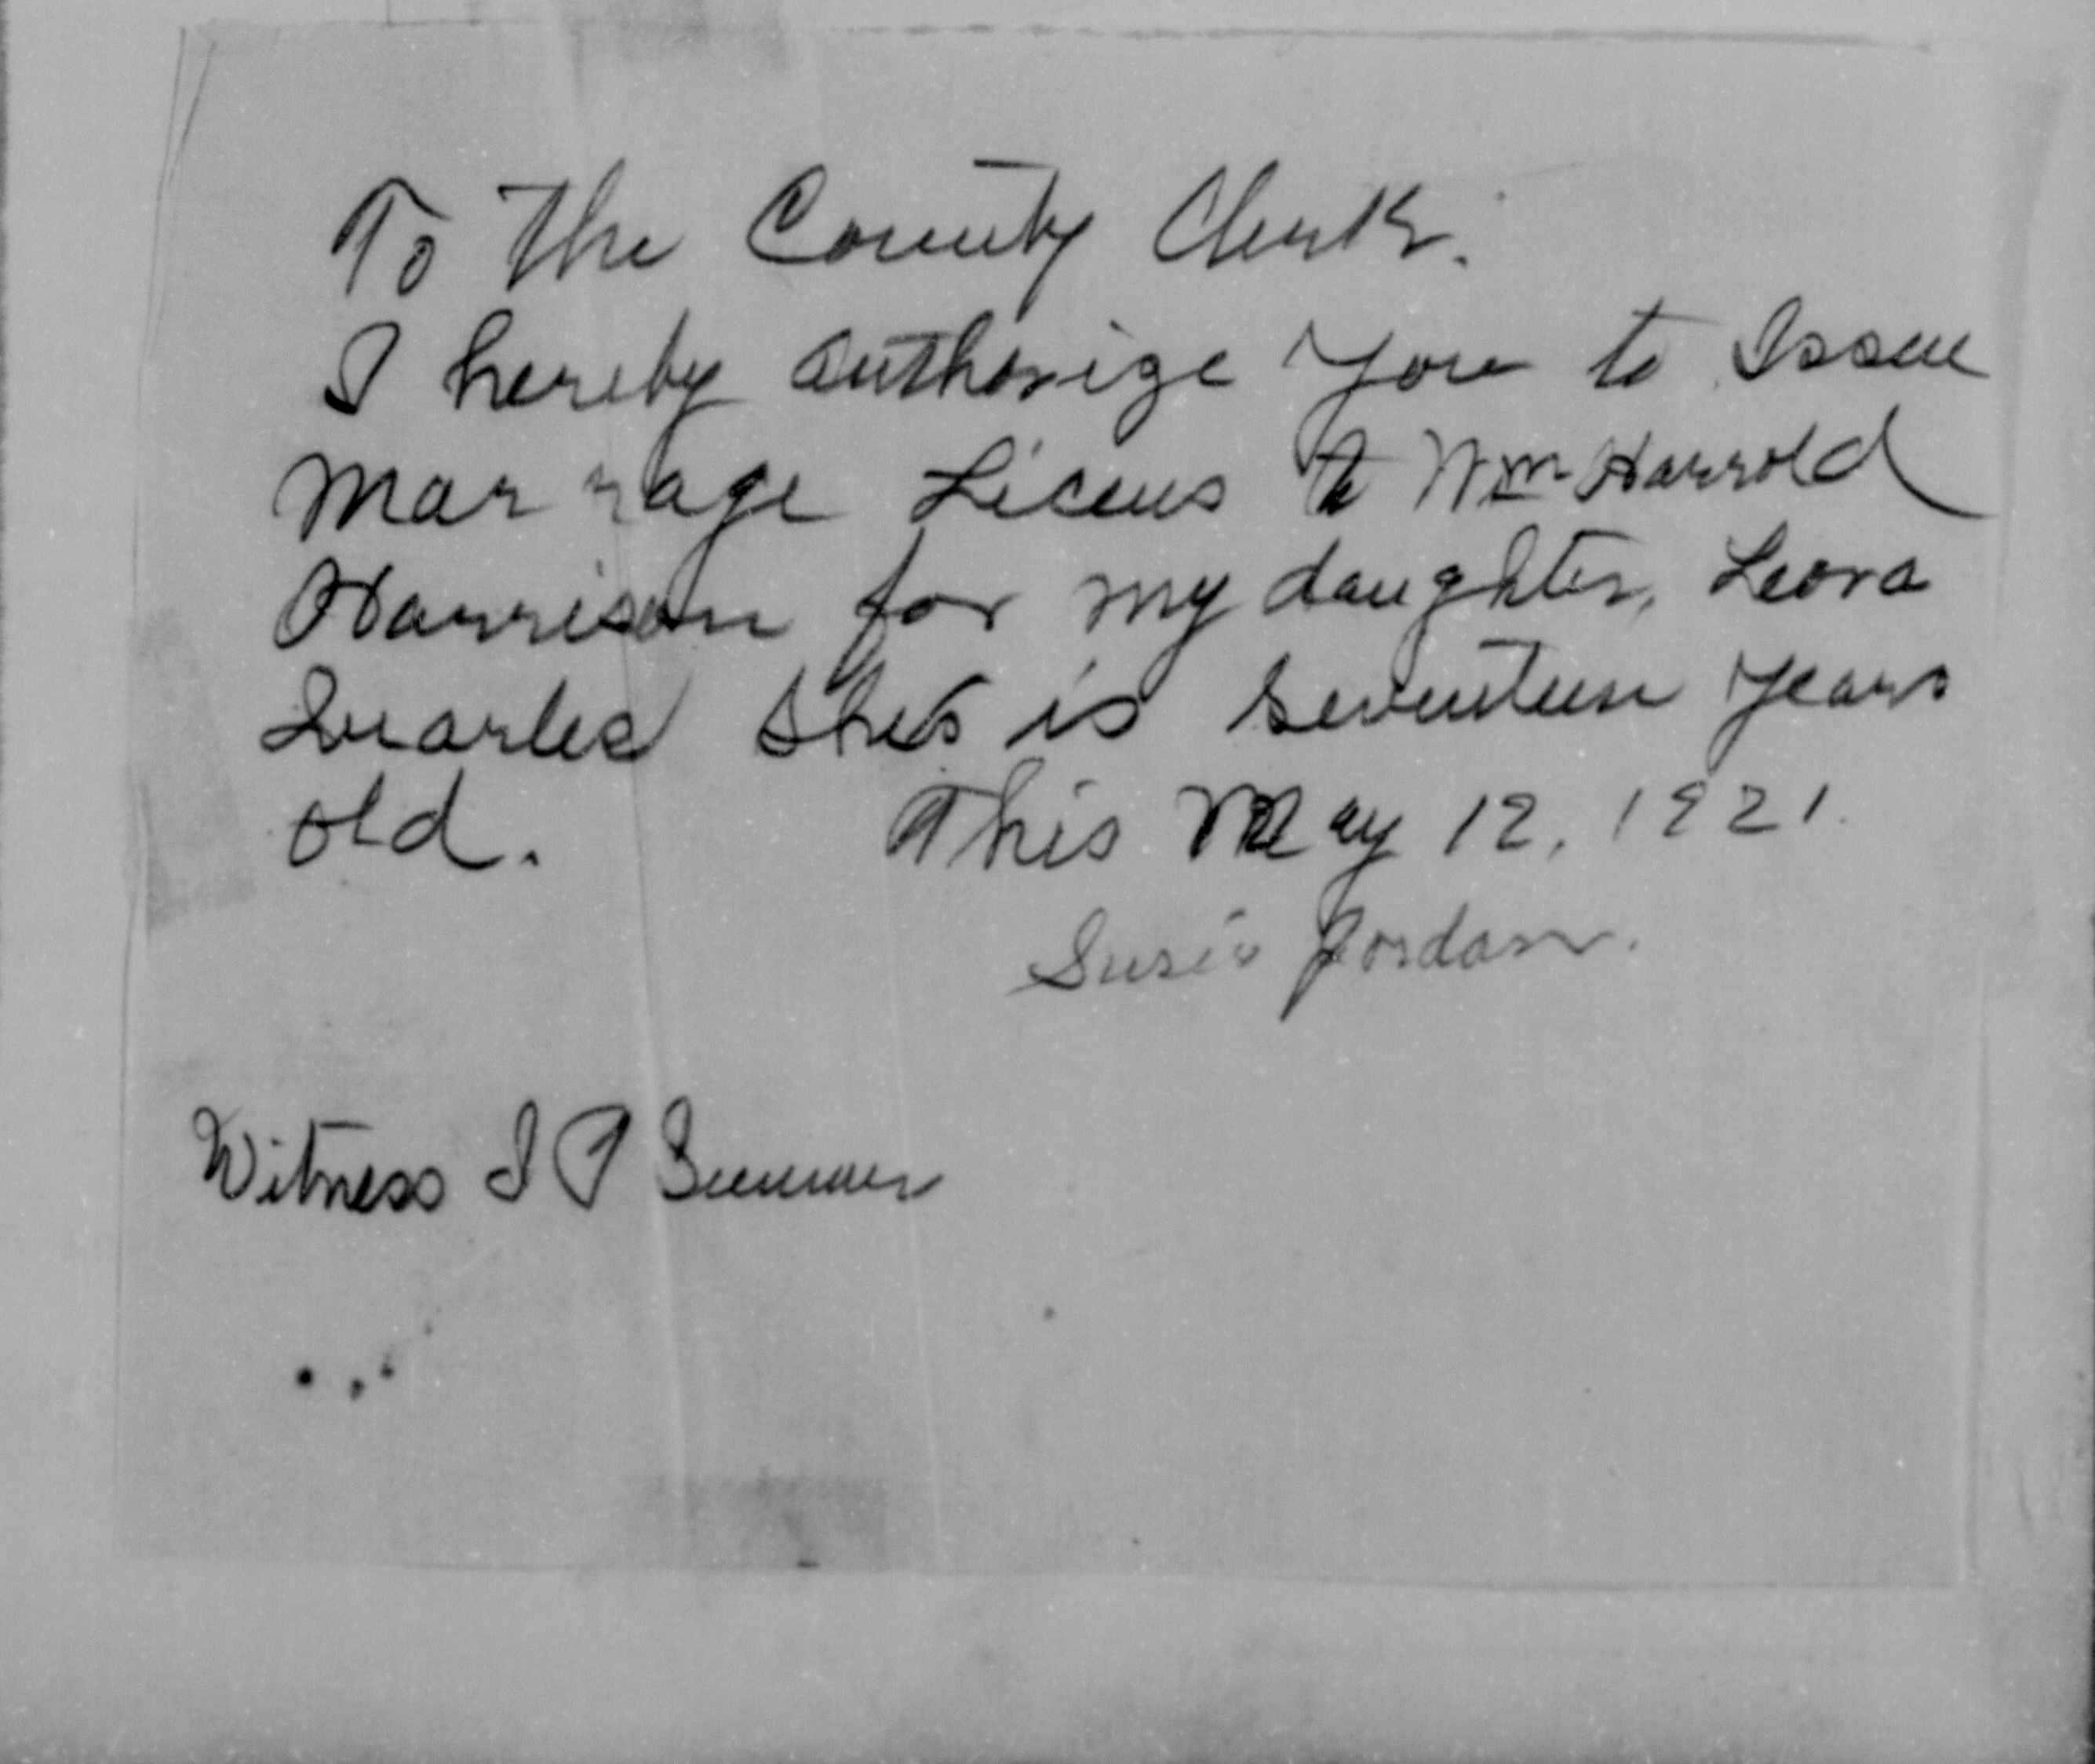 To The County Clerk.
I hereby authorize you to Issue
Marrage Licens to Wm Harrold
Harrison for my daughter, Leora
Quarles She is Seventeen years
old. This May 12, 1921.
Susie Jordan.
Witness